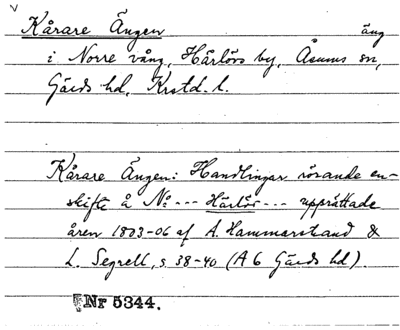 Kårare Ängen äng
i Norre vång, Härlövs by, Åsums sn,
Gärds hd, Krstd. l.
Kårare Ängen: Handlingar rörande en-
skifte å No --- Härlöv --- upprättade
åren 1803-06 af A. Hammarstrand &
L. Segrell, s. 38-40 (A 6 Gärds hd).
Nr 5344.